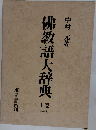 中村 元著
佛教語大辞典
東京書籍